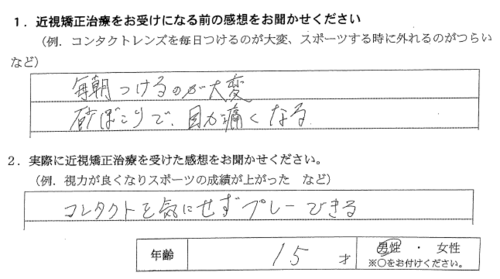 1．近視矯正治療をお受けになる前の感想をお聞かせください
（例．コンタクトレンズを毎日つけるのが大変、スポーツする時に外れるのがつらい
など）
毎朝つけるのが大変
砂ぼこりで、目が痛くなる
2．実際に近視矯正治療を受けた感想をお聞かせください。
（例．視力が良くなりスポーツの成績が上がった　など）
コンタクトを気にせずプレーできる
年齢　15　才　男性　・　女性
※○をお付けください。